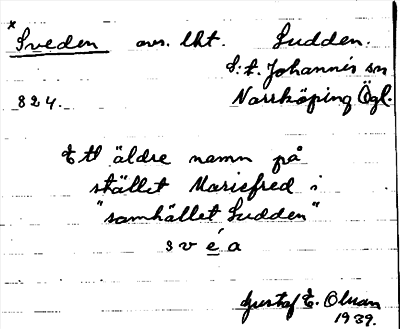 * Sveden avs. lht. Sudden.
S:t. Johannis sn
824. Norrköping Ögl.
Ett äldre namn på
stället Mariefred i
"samhället Sudden"
svéa
Gustaf E. Olsson
1939.